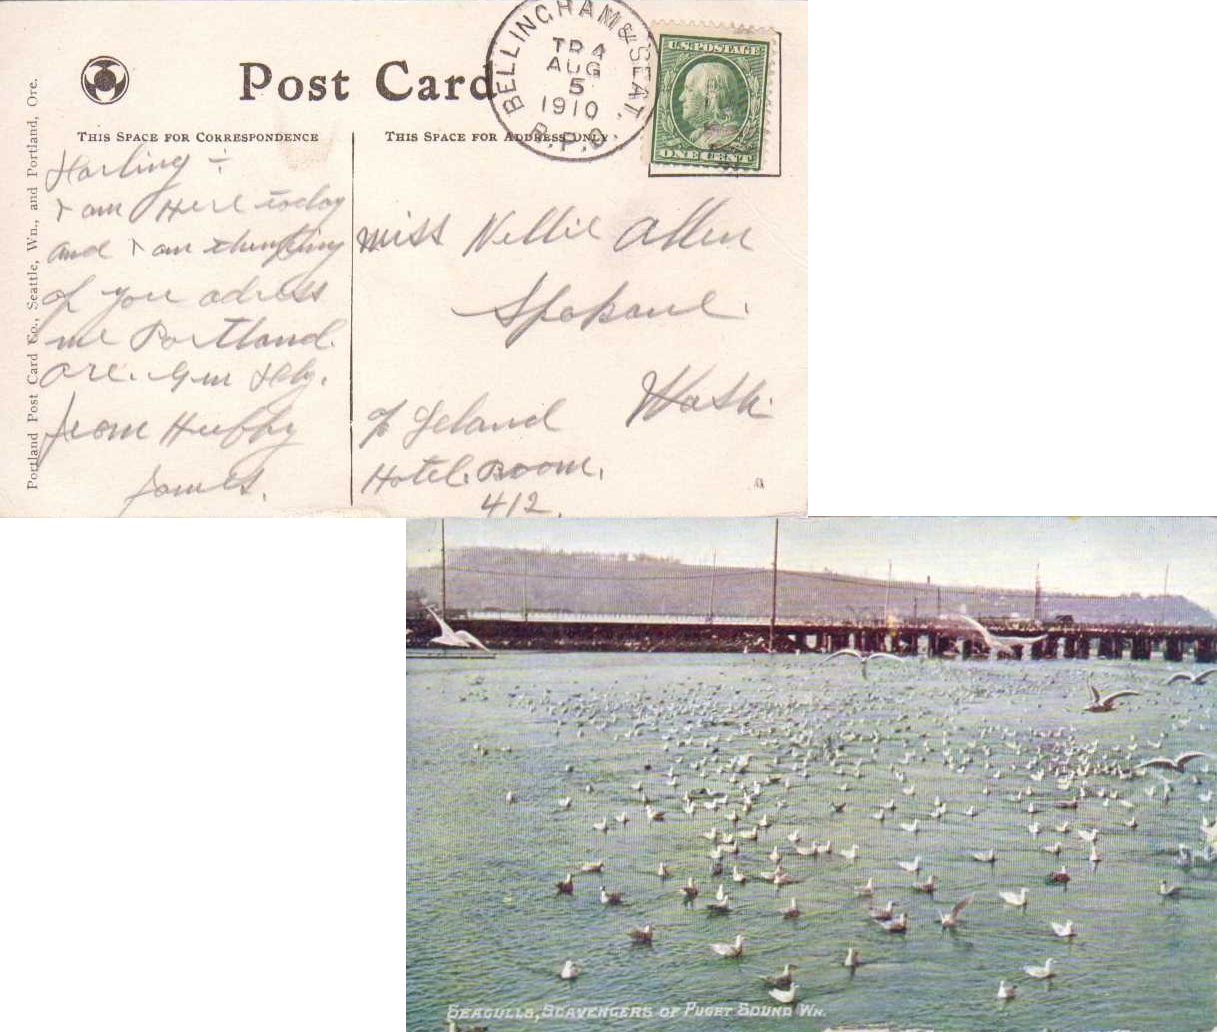 Post Card
BELLINGHAM & SEAT.
TR 4
AUG
5
1910
R.P.O.
U.S. POSTAGE
ONE CENT
THIS SPACE FOR CORRESPONDENCE
THIS SPACE FOR ADDRESS ONLY
Portland Post Card Co., Seattle, Wn., and Portland, Ore.
Harling ÷
I am Here today
and I am thinking
of you adress
me Portland.
Ore. Gen Dely.
from Hubby
James.
Miss Nellie Allen
Spokane.
Wash.
% Leland
Hotel. Room.
412.
SEAGULLS, SCAVENGERS OF PUGET SOUND WN.